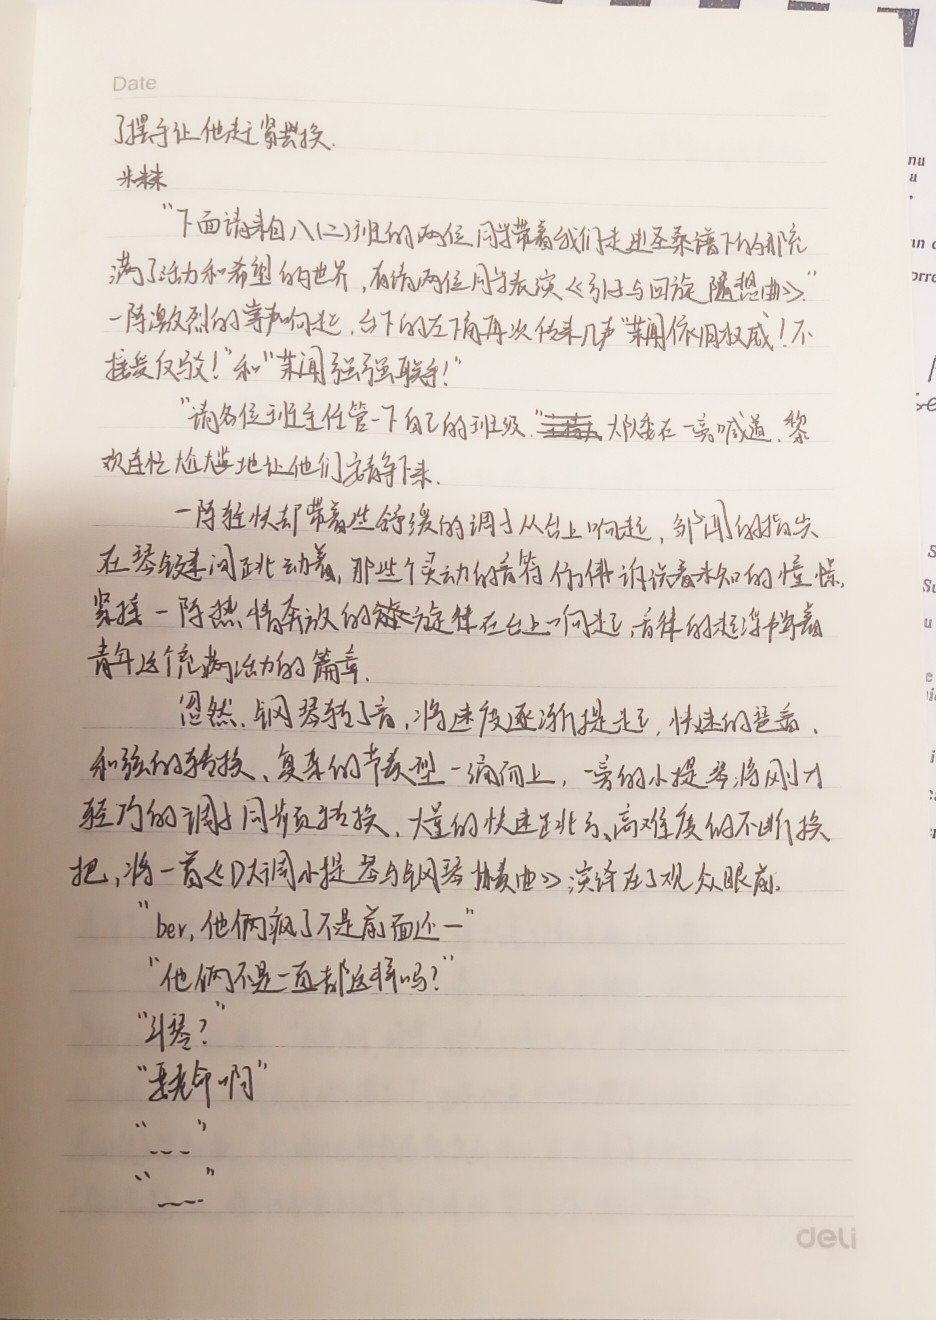 Date
了摆手让他赶紧替换.
米糕
“下面请来自八(二)班的两位同学带着我们走进圣桑谱下的那充
满了活力和希望的世界,有请两位同学表演《引子与回旋随想曲》.”
一阵激烈的掌声响起,台下的左下角再次传来几声“莱闻依旧权威!不
接受反驳!”和“莱闻强强联手!”
“请各位班主任管一下自己的班级.”大队委在一旁喊道,黎
欢连忙尴尬地让他们安静下来.
一阵轻快却带着些舒缓的调子从台上响起,邹闻的指尖
在琴键间跳动着,那些个灵动的音符仿佛诉说着未知的憧憬,
紧接一阵热情奔放的旋律在台上响起,音律的起浮书写着
青年这个充满活力的篇章.
忽然,钢琴转了音,将速度逐渐提起,快速的琶音、
和弦的转换、复杂的节奏型一涌而上,一旁的小提琴将刚才
轻巧的调子同频转换,大量的快速跳弓、高难度的不断换
把,将一首《D大调小提琴与钢琴协奏曲》演绎在了观众眼前.
“ber,他俩疯了不是前面还一”
“他俩不是一直都这样吗?”
“斗琴?”
“要老命啊”
“---”
“---”
deli